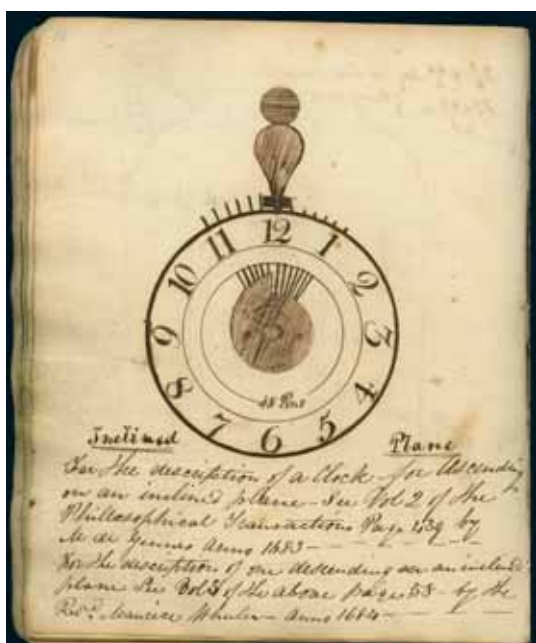 12
11 1
10 2
9 3
8 4
7 5
6
48 Pins
Inclined Plane
For the description of a Clock for Ascending
on an inclined plane - See Vol 2 of the
Philosophical Transactions Page 439 by
M de Gennes Anno 1683
For the description of one descending on an inclined
plane See Vol 3 of the above page 58 by the
Revd. Maurice Wheeler - Anno 1684